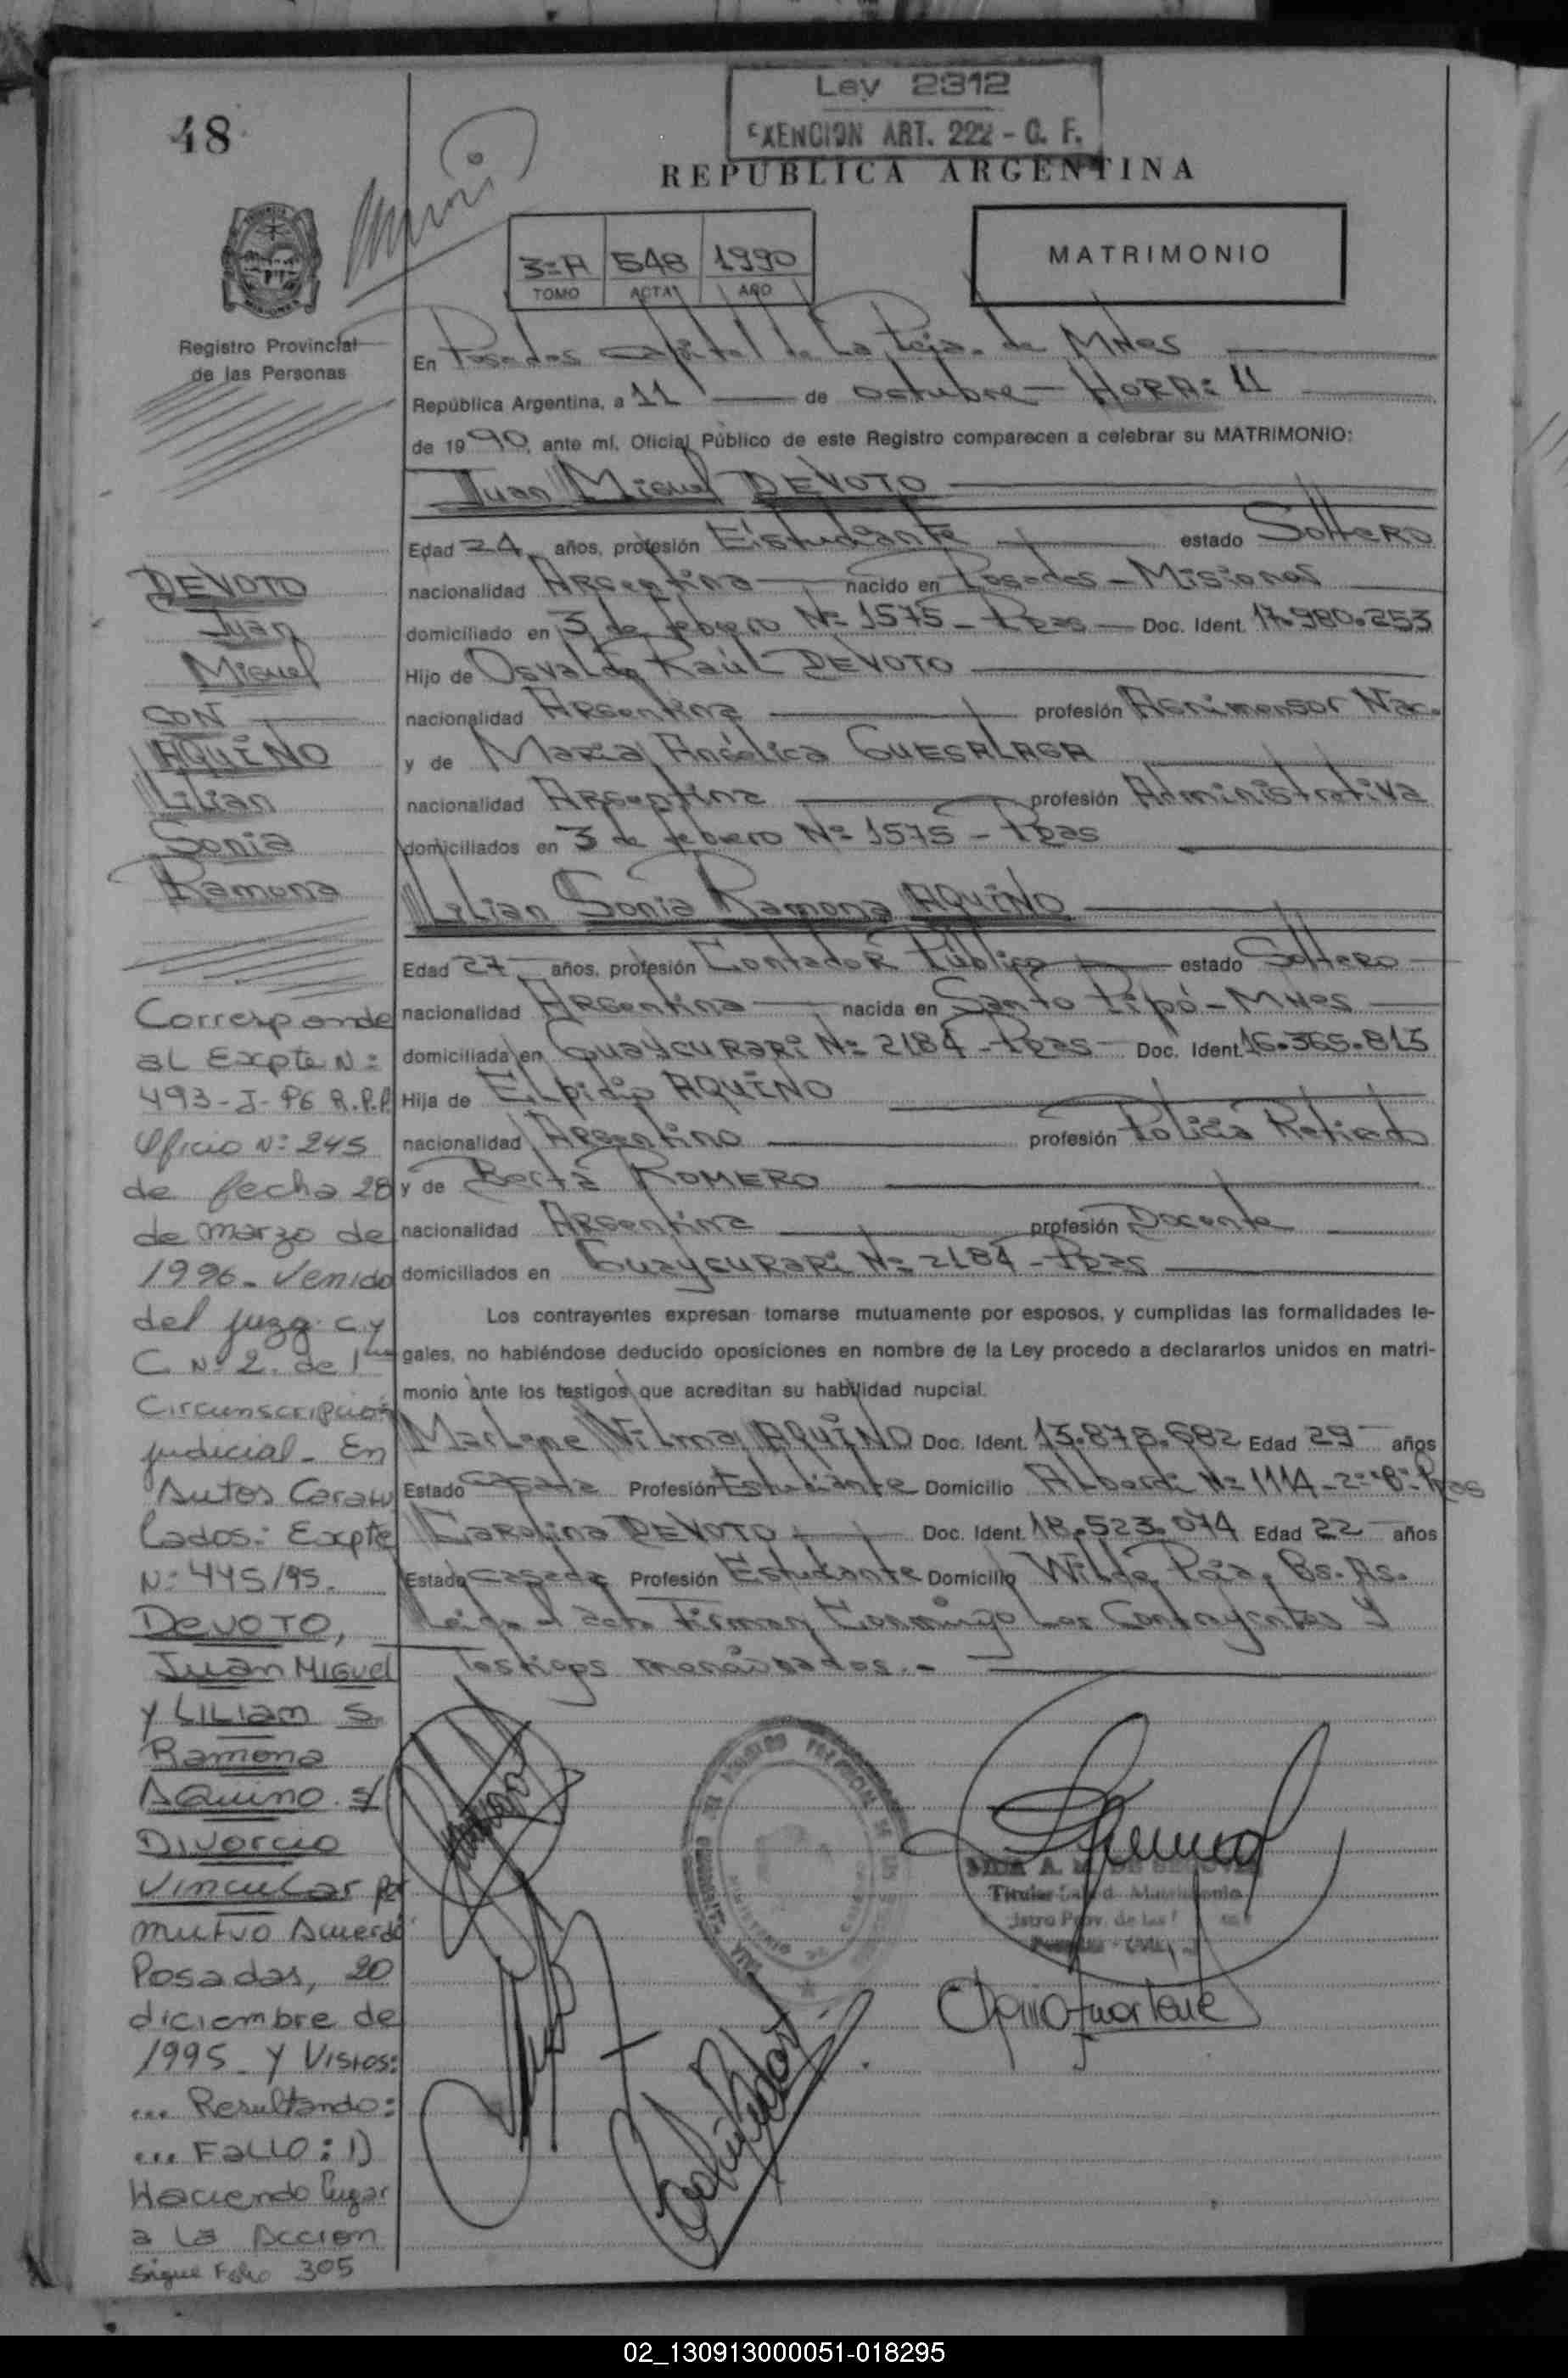 48
Ley 2312
EXENCION ART. 222 - C. F.
REPUBLICA ARGENTINA
3=A 548 1990
TOMO ACTA AÑO
MATRIMONIO
Registro Provincial
de las Personas
En Posadas Capital de La Pcja. de Mnes
República Argentina, a 11 de octubre - HORA: 11
de 1990, ante mí, Oficial Público de este Registro comparecen a celebrar su MATRIMONIO:
Juan Miguel DEVOTO
Edad 24 años, profesión Estudiante estado Soltero
nacionalidad Argentina nacido en Posadas - Misiones
domiciliado en 3 de febrero Nº 1575 - Pdas - Doc. Ident. 17.980.253
Hijo de Osvaldo Raúl DEVOTO
nacionalidad Argentina profesión Agrimensor Nac.
y de María Angélica GUESALAGA
nacionalidad Argentina profesión Administrativa
domiciliados en 3 de febrero Nº 1575 - Pdas
Lilian Sonia Ramona AQUINO
Edad 27 años, profesión Contador Público estado Soltero
nacionalidad Argentina nacida en Santo Pipó - Mnes
domiciliada en Guaycurari Nº 2184 - Pdas - Doc. Ident. 16.365.813
Hija de Elpidio AQUINO
nacionalidad Argentino profesión Policia Retirado
y de Berta ROMERO
nacionalidad Argentina profesión Docente
domiciliados en Guaycurari Nº 2184 - Pdas
Los contrayentes expresan tomarse mutuamente por esposos, y cumplidas las formalidades le-
gales, no habiéndose deducido oposiciones en nombre de la Ley procedo a declararlos unidos en matri-
monio ante los testigos que acreditan su habilidad nupcial.
Marlene Vilma AQUINO Doc. Ident. 13.878.682 Edad 29 años
Estado Casada Profesión Estudiante Domicilio Alberdi Nº 1114 - 2º "B" Pdas
Carolina DEVOTO Doc. Ident. 18.523.074 Edad 22 años
Estado Casada Profesión Estudiante Domicilio Wilde Pcia. Bs. As.
Leída el acta Firman Conmigo Los Contrayentes y
Testigos mencionados.-
DEVOTO
Juan
Miguel
CON
AQUINO
Lilian
Sonia
Ramona
Corresponde
al Expte N:
493-J-96 R.P.P
Oficio Nº 245
de fecha 28
de marzo de
1996. Venido
del juzg. C y
C. Nº 2. de 1ra
Circunscripción
judicial. En
Autos Caratu
lados: Expte
Nº 445/95.
DEVOTO,
Juan MIGUEL
y LILIAM S.
Ramona
AQUINO. s/
Divorcio
Vincular por
mutuo Acuerdo
Posadas, 20
diciembre de
1995. Y Vistos:
... Resultando:
... FALLO: 1)
Haciendo lugar
a la Accion
Sigue Folio 305
Aquino Marlene
02_130913000051-018295